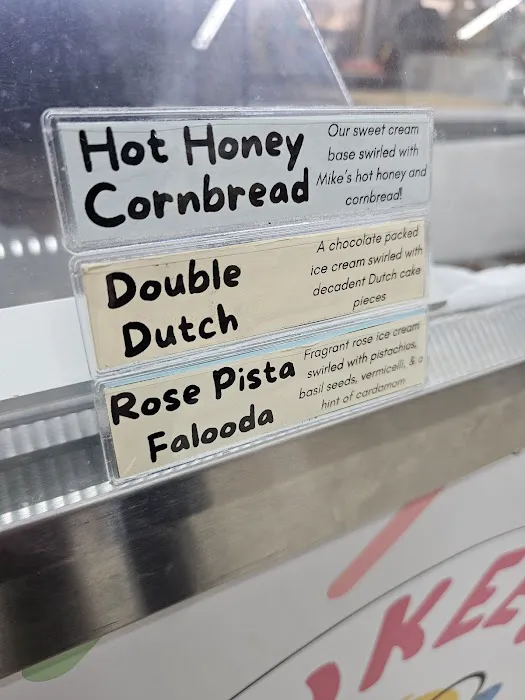 Hot Honey
Cornbread
Our sweet cream
base swirled with
Mike's hot honey and
cornbread!
Double
Dutch
A chocolate packed
ice cream swirled with
decadent Dutch cake
pieces
Rose Pista
Falooda
Fragrant rose ice cream
swirled with pistachios,
basil seeds, vermicelli, & a
hint of cardamom